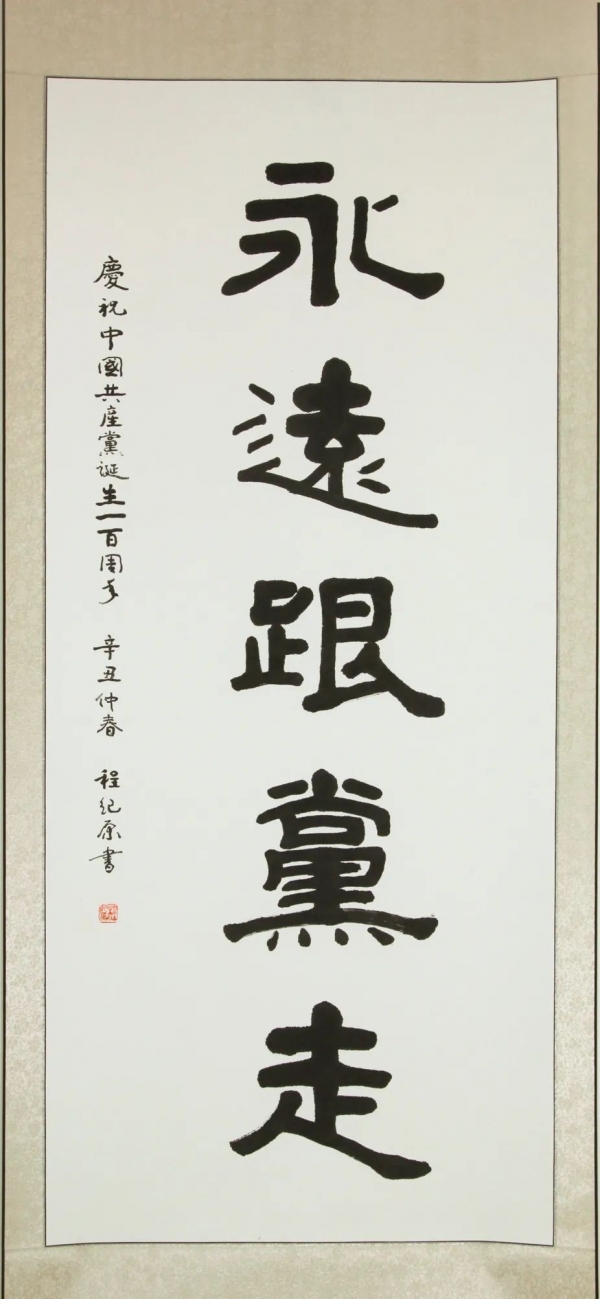 永遠跟黨走
慶祝中國共産黨誕生一百周年 辛丑仲春 程紀原書